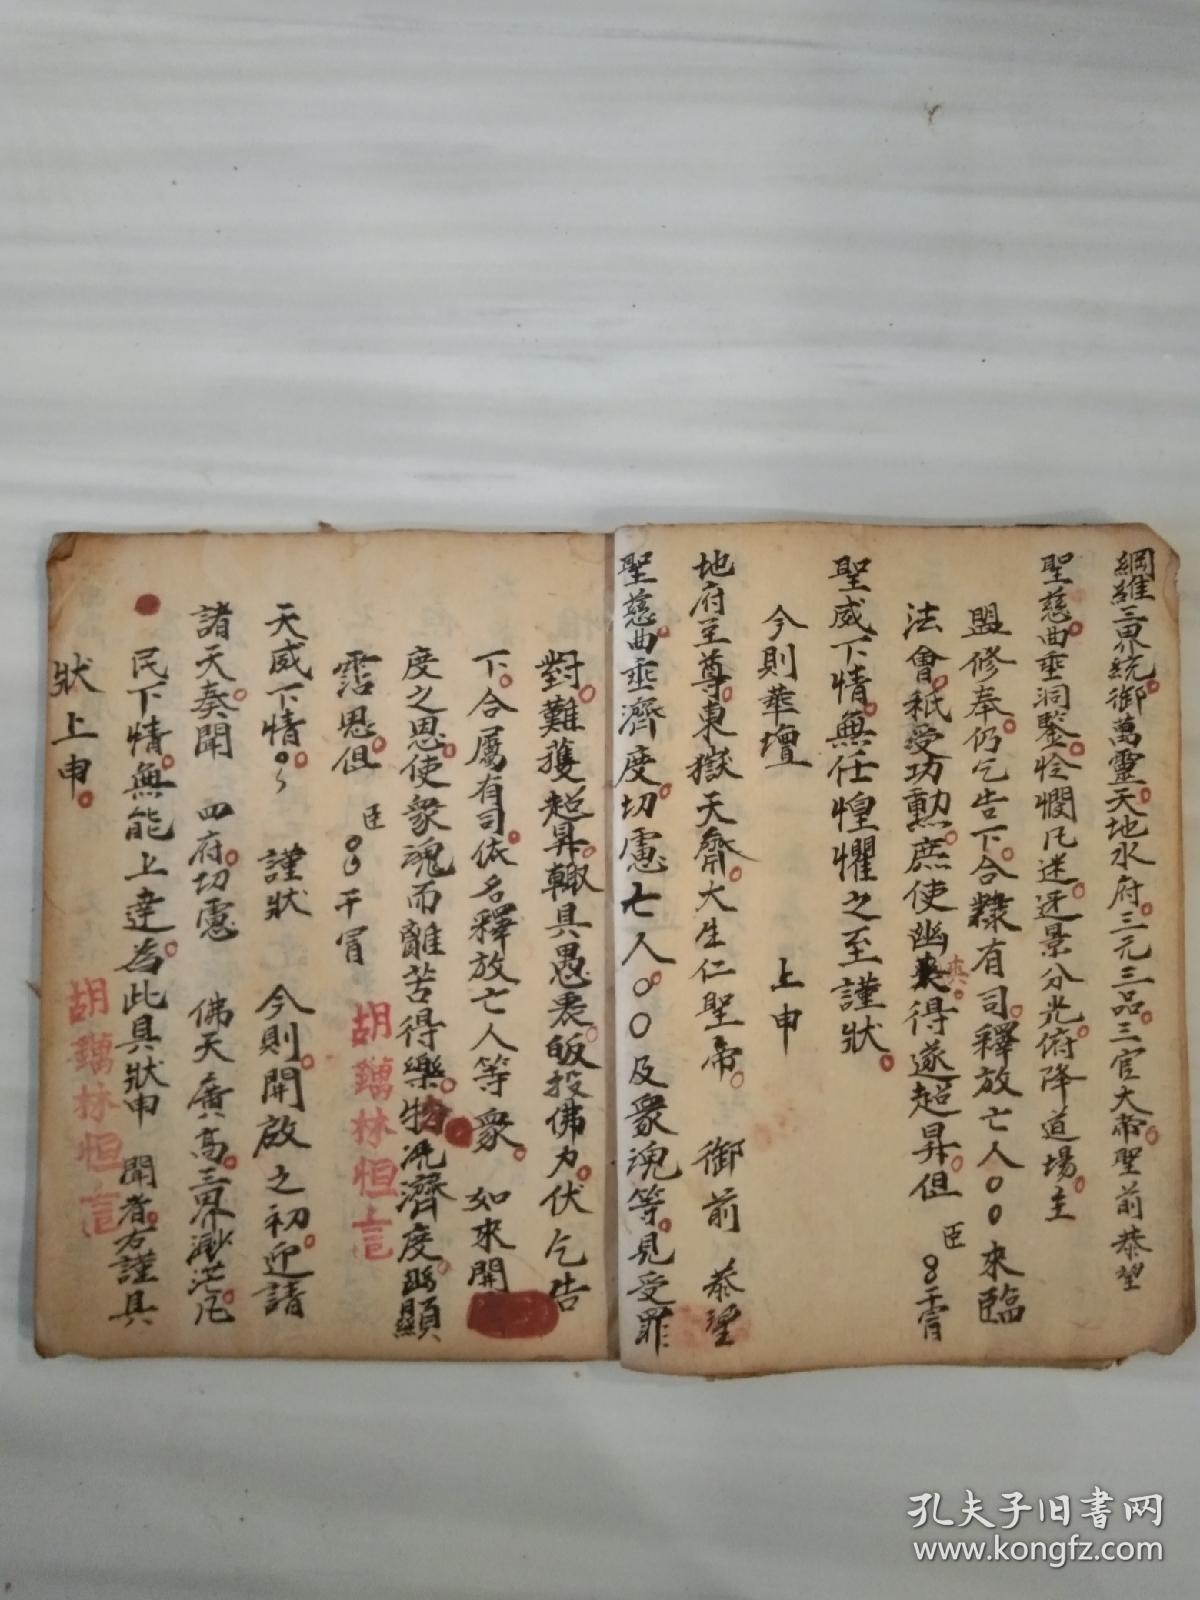 綱維三界統御萬靈天地水府三元三品三官大帝聖前恭望
聖慈曲垂洞鑒怜憫凡迷迓景分光俯降道場主
盟修奉仍乞告下合隸有司釋放亡人〇〇來臨
法會秖受功勲庶使幽爽得遂超昇但臣〇干冒
爽
聖威下情無任惶懼之至謹狀
今則華壇 上申
地府至尊東嶽天齋大生仁聖帝 御前 恭望
聖慈曲垂濟度切慮亡人〇〇及衆魂等見受罪
對難獲超昇輙具愚衷皈投佛力伏乞告
下合屬有司依名釋放亡人等衆 如來開
度之恩使衆魂而離苦得樂物洗濟度幽顯
霑恩但臣〇〇干冒
天威下情 謹狀 今則開啟之初迎請
諸天奏聞 四府切慮 佛天廣高三界渺茫凡
民下情無能上達為此具狀申 聞者右謹具
狀上申
胡鑄林恒言
胡鑄林恒言
孔夫子旧书网
www.kongfz.com